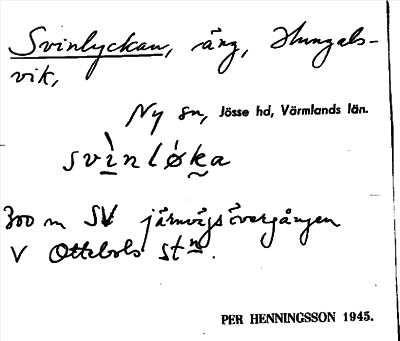 Svinlyckan, äng, Hungals-
vik,
Ny sn, Jösse hd, Värmlands län.
svìnlǿka
300 m SV järnvägsövergången
V Ottebols stn.
PER HENNINGSSON 1945.